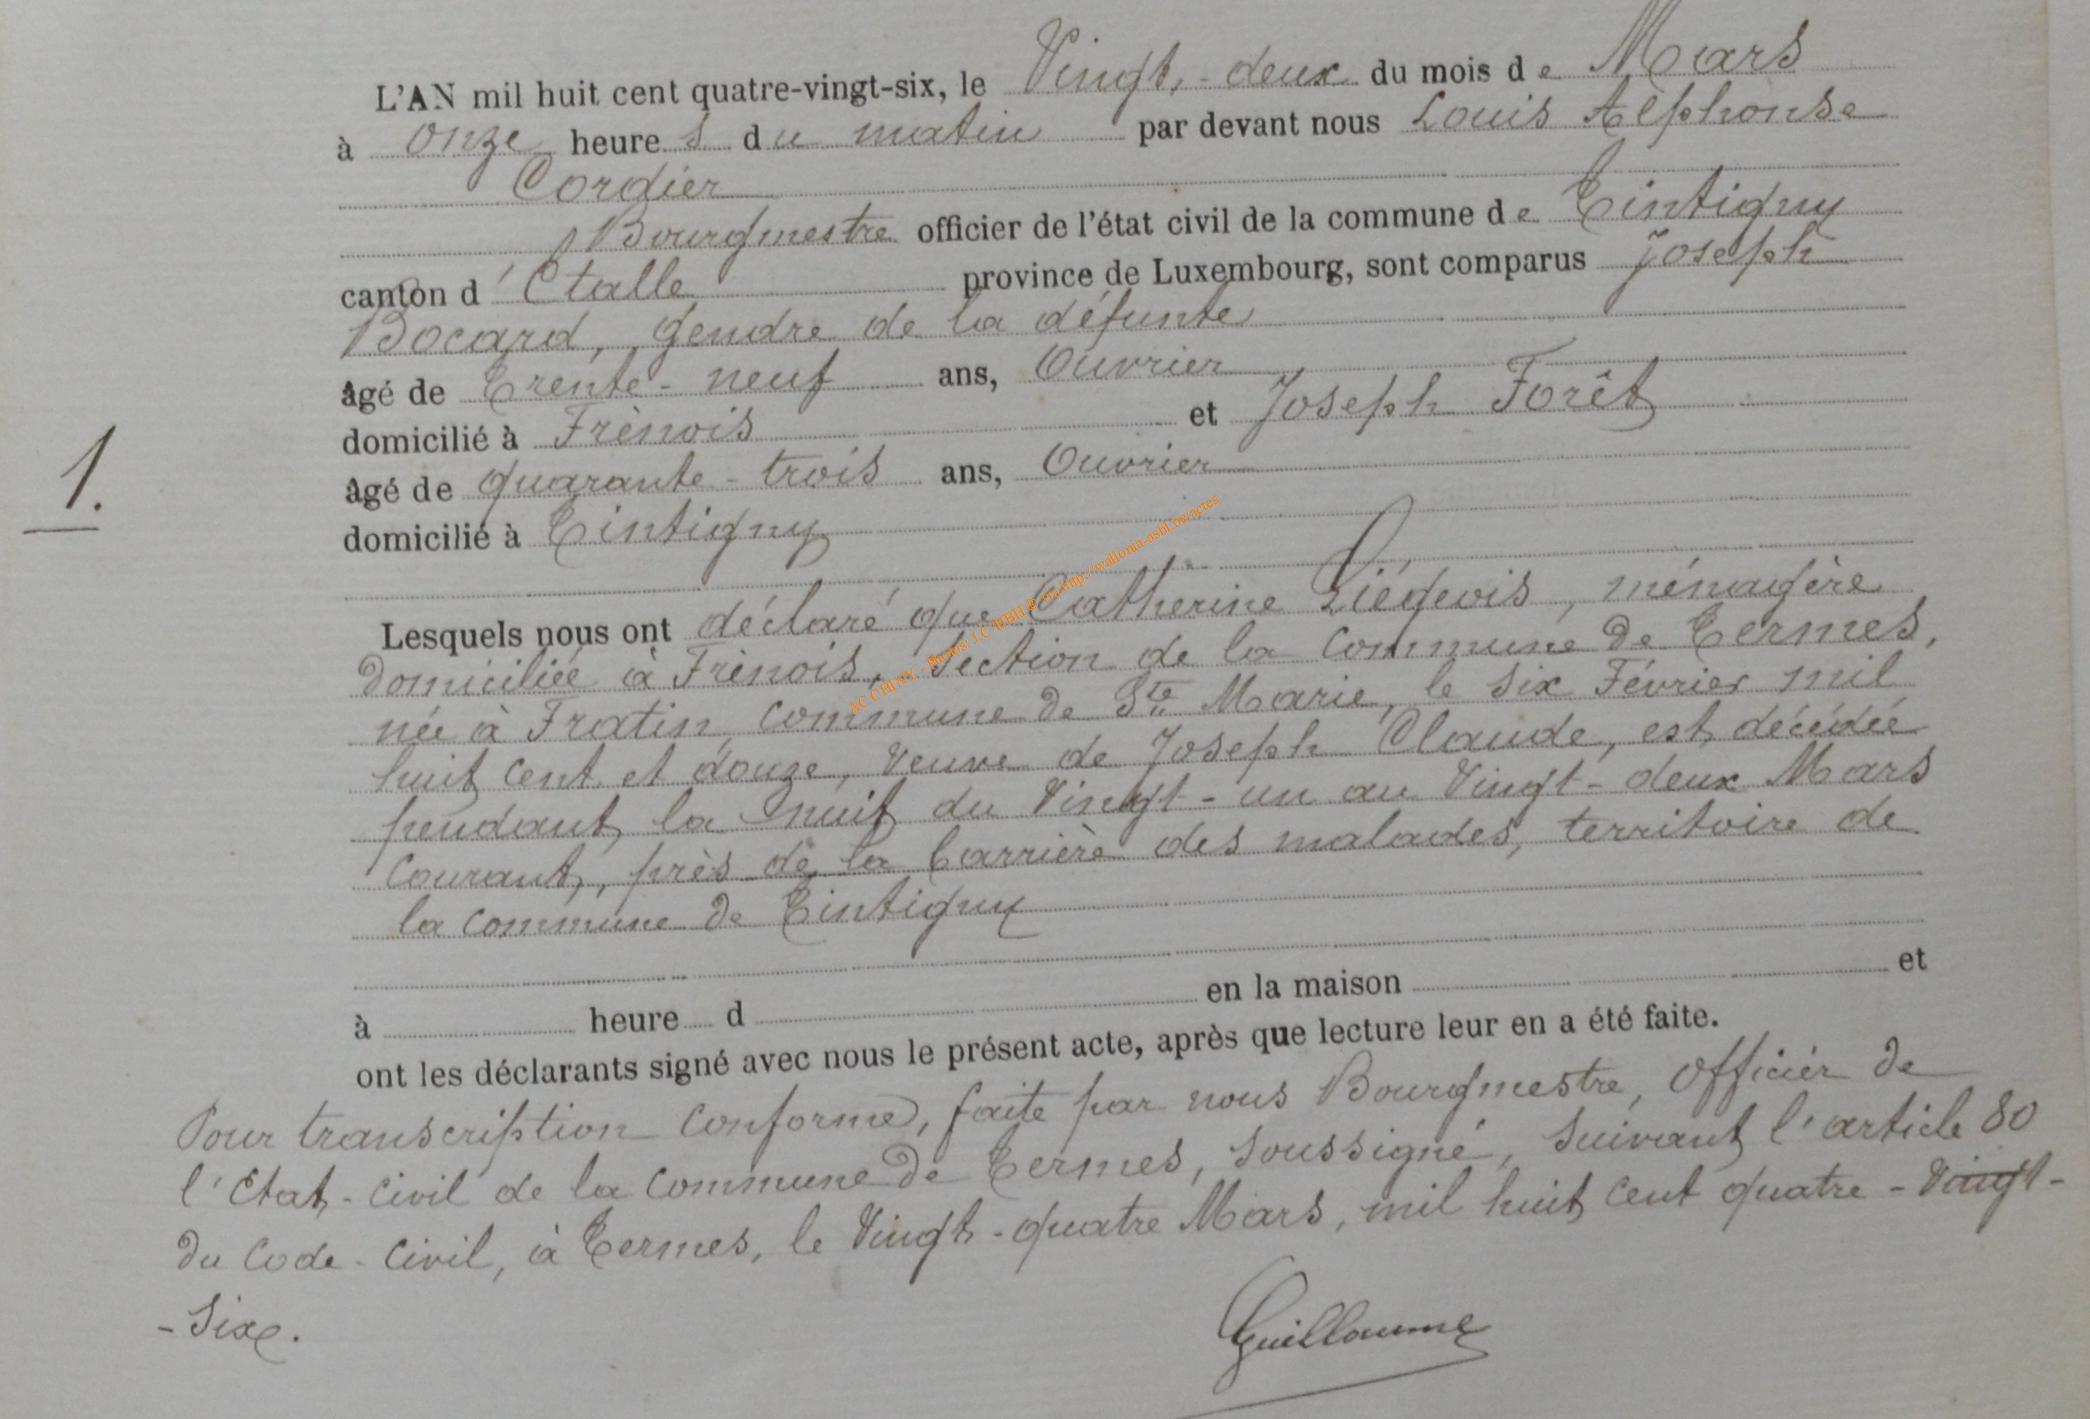 L'AN mil huit cent quatre-vingt-six, le Vingt-deux du mois de Mars
à onze heures du matin par devant nous Louis Alphonse
Cordier
Bourgmestre officier de l'état civil de la commune de Tintigny
canton d'Etalle province de Luxembourg, sont comparus Joseph
Bocard, gendre de la défunte
âgé de Trente-neuf ans, Ouvrier
domicilié à Frènois et Joseph Forêt
1.
âgé de quarante-trois ans, Ouvrier
domicilié à Tintigny
Lesquels nous ont déclaré que Catherine Liégeois, ménagère
domiciliée à Frènois, section de la commune de Termes,
née à Fratin, commune de Ste Marie, le six Février mil
huit cent et douze, veuve de Joseph Claude, est décédée
pendant la nuit du vingt-un au vingt-deux Mars
courant, près de la Carrière des malades, territoire de
la commune de Tintigny
à heure d en la maison et
ont les déclarants signé avec nous le présent acte, après que lecture leur en a été faite.
Pour transcription conforme, faite par nous Bourgmestre, Officier de
l'Etat-Civil de la commune de Termes, soussigné, suivant l'article 80
du Code-Civil, à Termes, le vingt-quatre Mars, mil huit cent quatre-vingt-
-six.
Guillaume
AC CHINY - Photos J.C HBH & via http://wallonia-asbl.be/actes